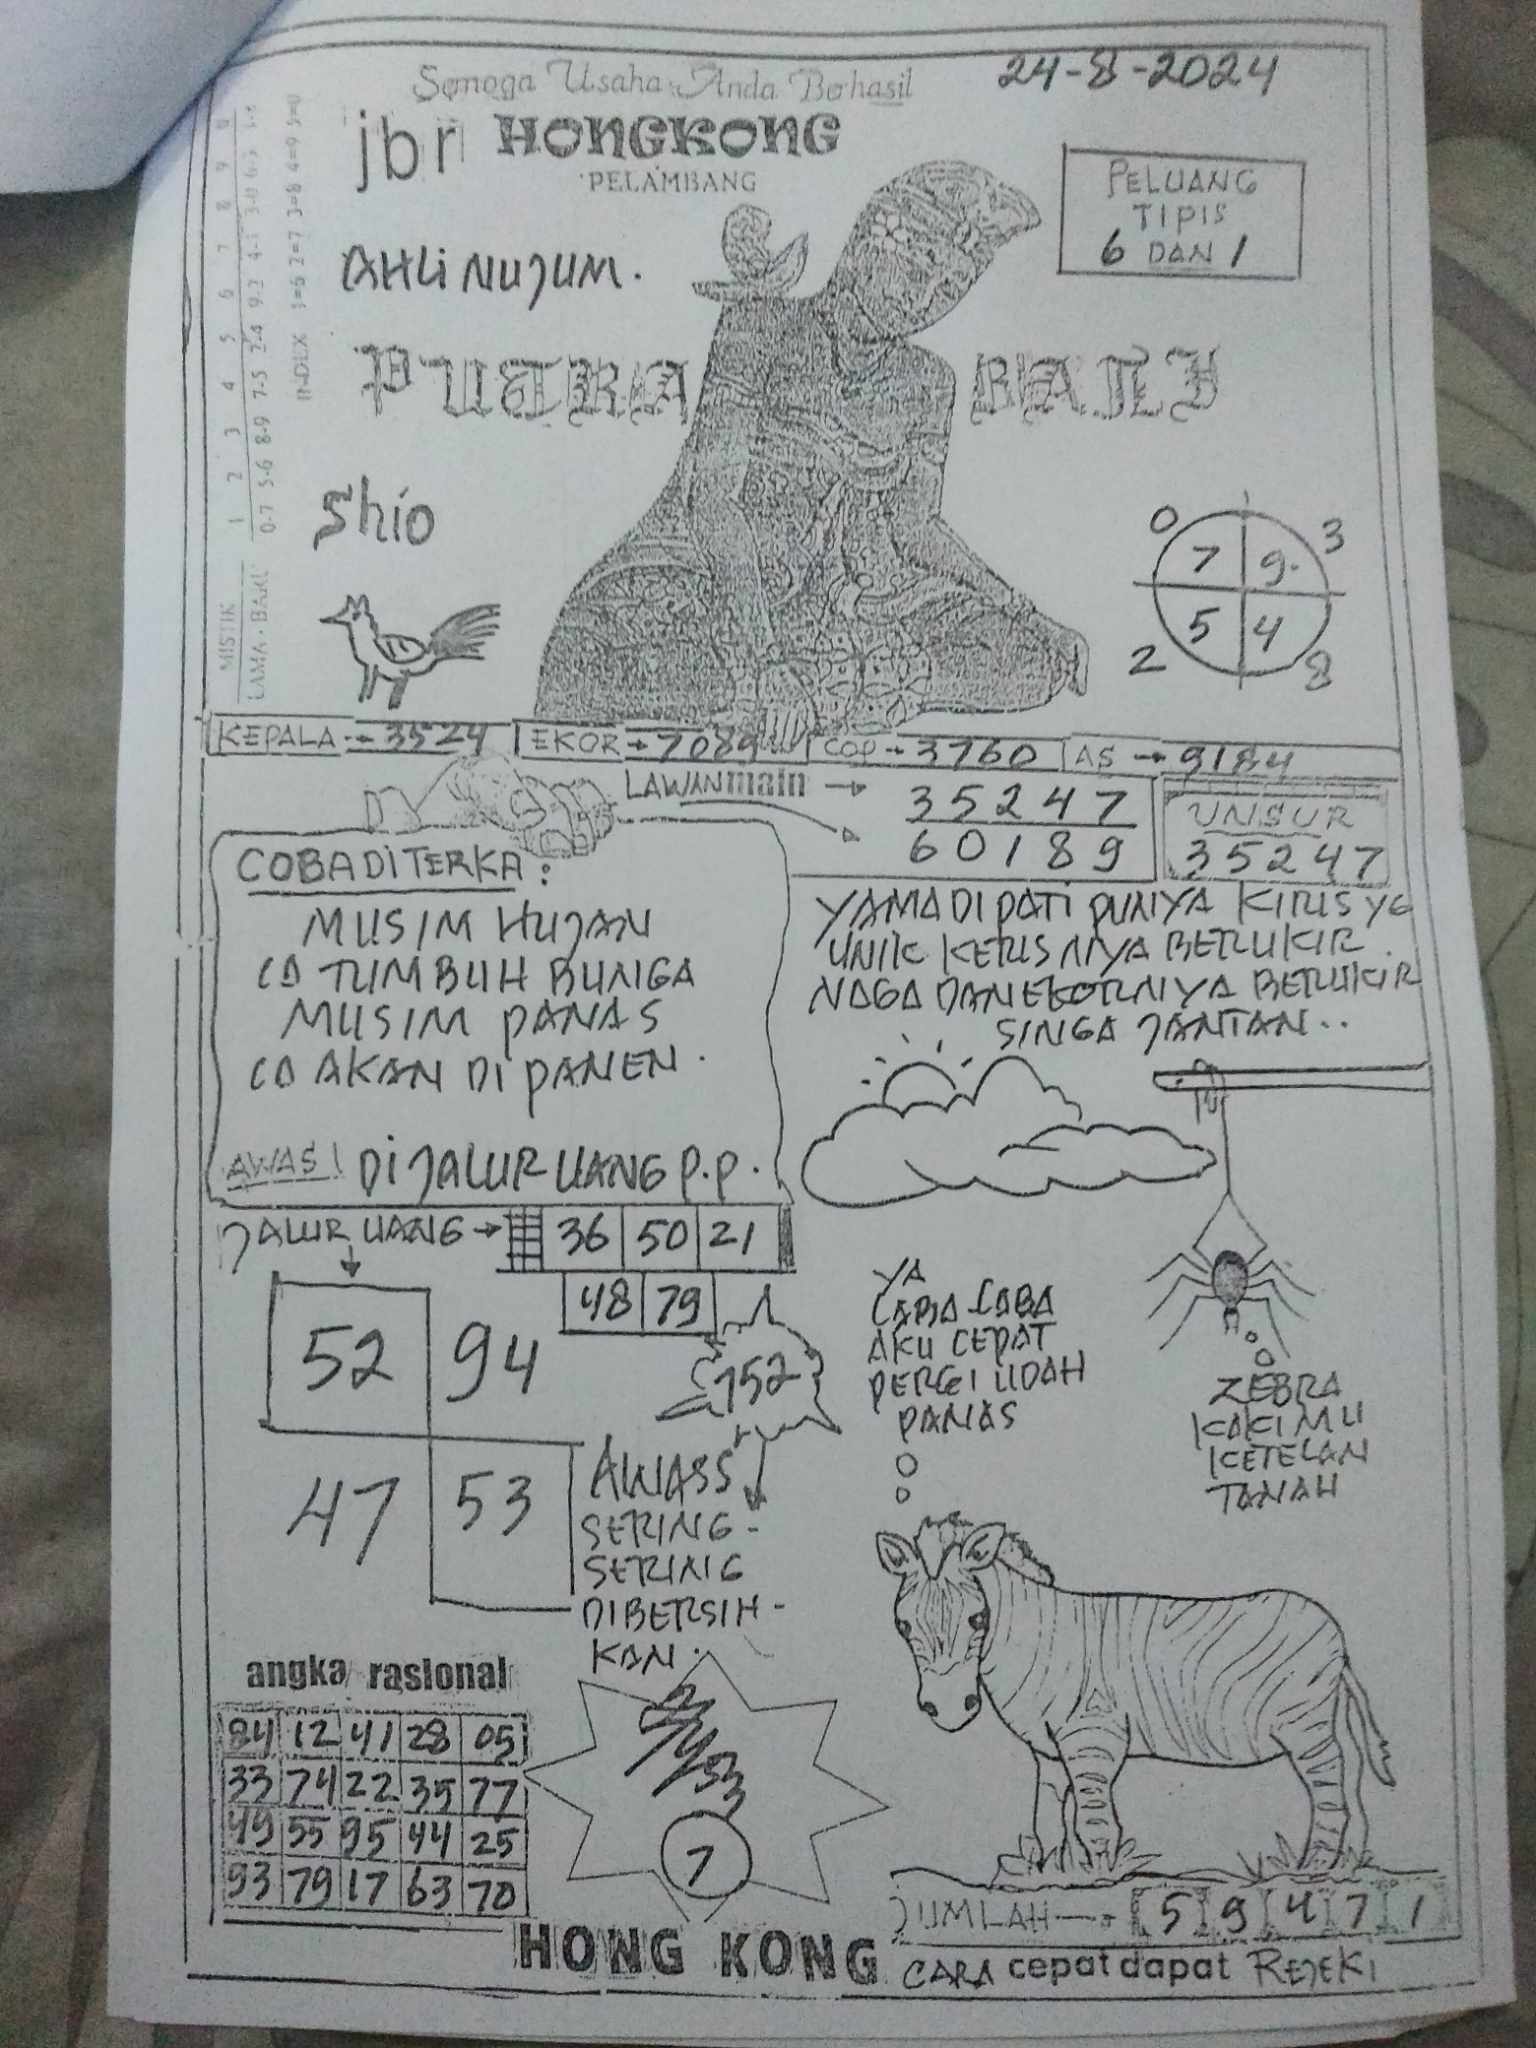 Semoga Usaha Anda Berhasil
24-8-2024
jbr HONGKONG
PELAMBANG
PELUANG
TIPIS
6 DAN 1
AHLI NUJUM.
PUTRA BALI
Shio
MISTIK 1 2 3 4 5 6 7 8 9 0
LAMA - BARU 0-7 5-6 8-9 7-5 2-4 9-2 4-1 3-0 6-3 1-8
INDEX 1=6 2=7 3=8 4=9 5=0
0 3
7 9
5 4
2 8
KEPALA → 3524 EKOR → 7089 COP → 3760 AS → 9184
LAWAN main → 35247
60189
UNSUR
35247
COBA DITERKA :
MUSIM HUJAN
IA TUMBUH BUNGA
MUSIM PANAS
IA AKAN DI PANEN.
AWAS! DI JALUR UANG P.P.
YAMADIPATI PUNYA KIRIS YG
UNIK KERISNYA BERUKIR
NAGA DAN EKORNYA BERUKIR
SINGA JANTAN..
JALUR UANG → 36 50 21
48 79
52 94
47 53
752
AWASS
SERING-
SERING
DIBERSIH-
KAN.
YA
LABA-LABA
AKU CEPAT
PERGI UDAH
PANAS
ZEBRA
KAKIMU
KETELAN
TANAH
angka rasional
84 12 41 28 05
33 74 22 35 77
49 55 95 44 25
93 79 17 63 70
7
JUMLAH → 5 9 4 7 1
HONG KONG CARA cepat dapat REJEKI